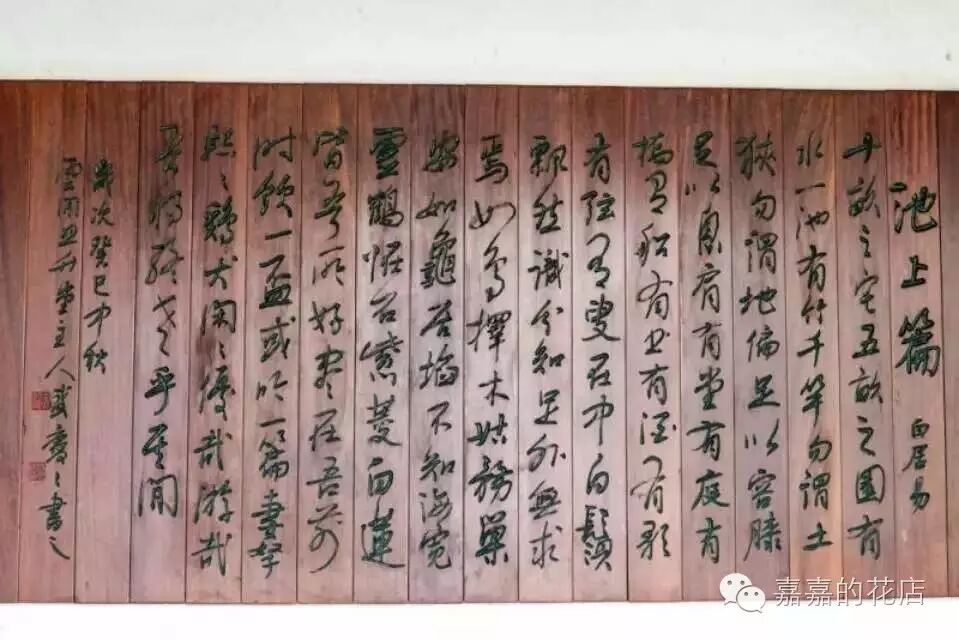 池上篇 白居易
十畝之宅五畝之園有
水一池有竹千竿勿謂土
狹勿謂地偏足以容膝
足以息肩有堂有庭有
橋有船有书有酒有歌
有弦有叟在中白鬚
飄然識分知足外無求
焉如鳥擇木姑務巢
安如龜居不知海寬
靈鶴怪石紫菱白蓮
皆吾所好盡在吾前
时飲一盃或吟一篇妻孥
熙〻鷄犬閑〻優哉游哉
吾將終老乎其間
歲次癸巳中秋
雲間堂主人書之
嘉嘉的花店